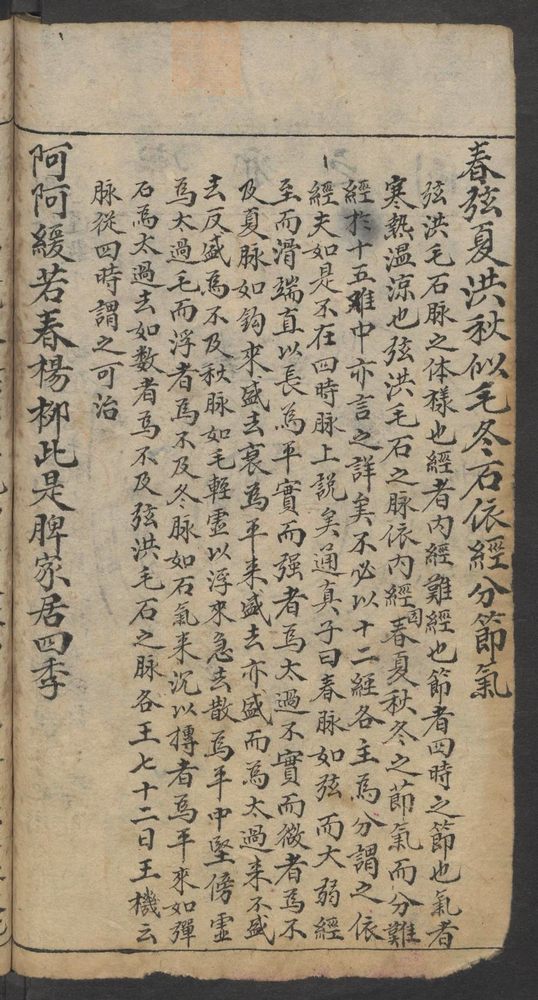 春弦夏洪秋似毛冬石依經分節氣
弦洪毛石脉之体樣也經者内經難經也節者四時之節也氣者
寒熱温凉也弦洪毛石之脉依内經因春夏秋冬之節氣而分難
經於十五难中亦言之詳矣不必以十二經各主爲分謂之依
經夫如是不在四時脉上説矣通真子曰春脉如弦而大弱經
至而滑端直以長爲平實而强者爲太過不實而微者爲不
及夏脉如鈎來盛去衰爲平来盛去亦盛而爲太過来不盛
去反盛爲不及秋脉如毛輕虚以浮來急去散爲平中堅傍虚
爲太過毛而浮者爲不及冬脉如石氣来沉以搏者爲平來如彈
石爲太過去如数者爲不及弦洪毛石之脉各王七十二日王機云
脉從四時謂之可治
阿阿緩若春楊柳此是脾家居四季